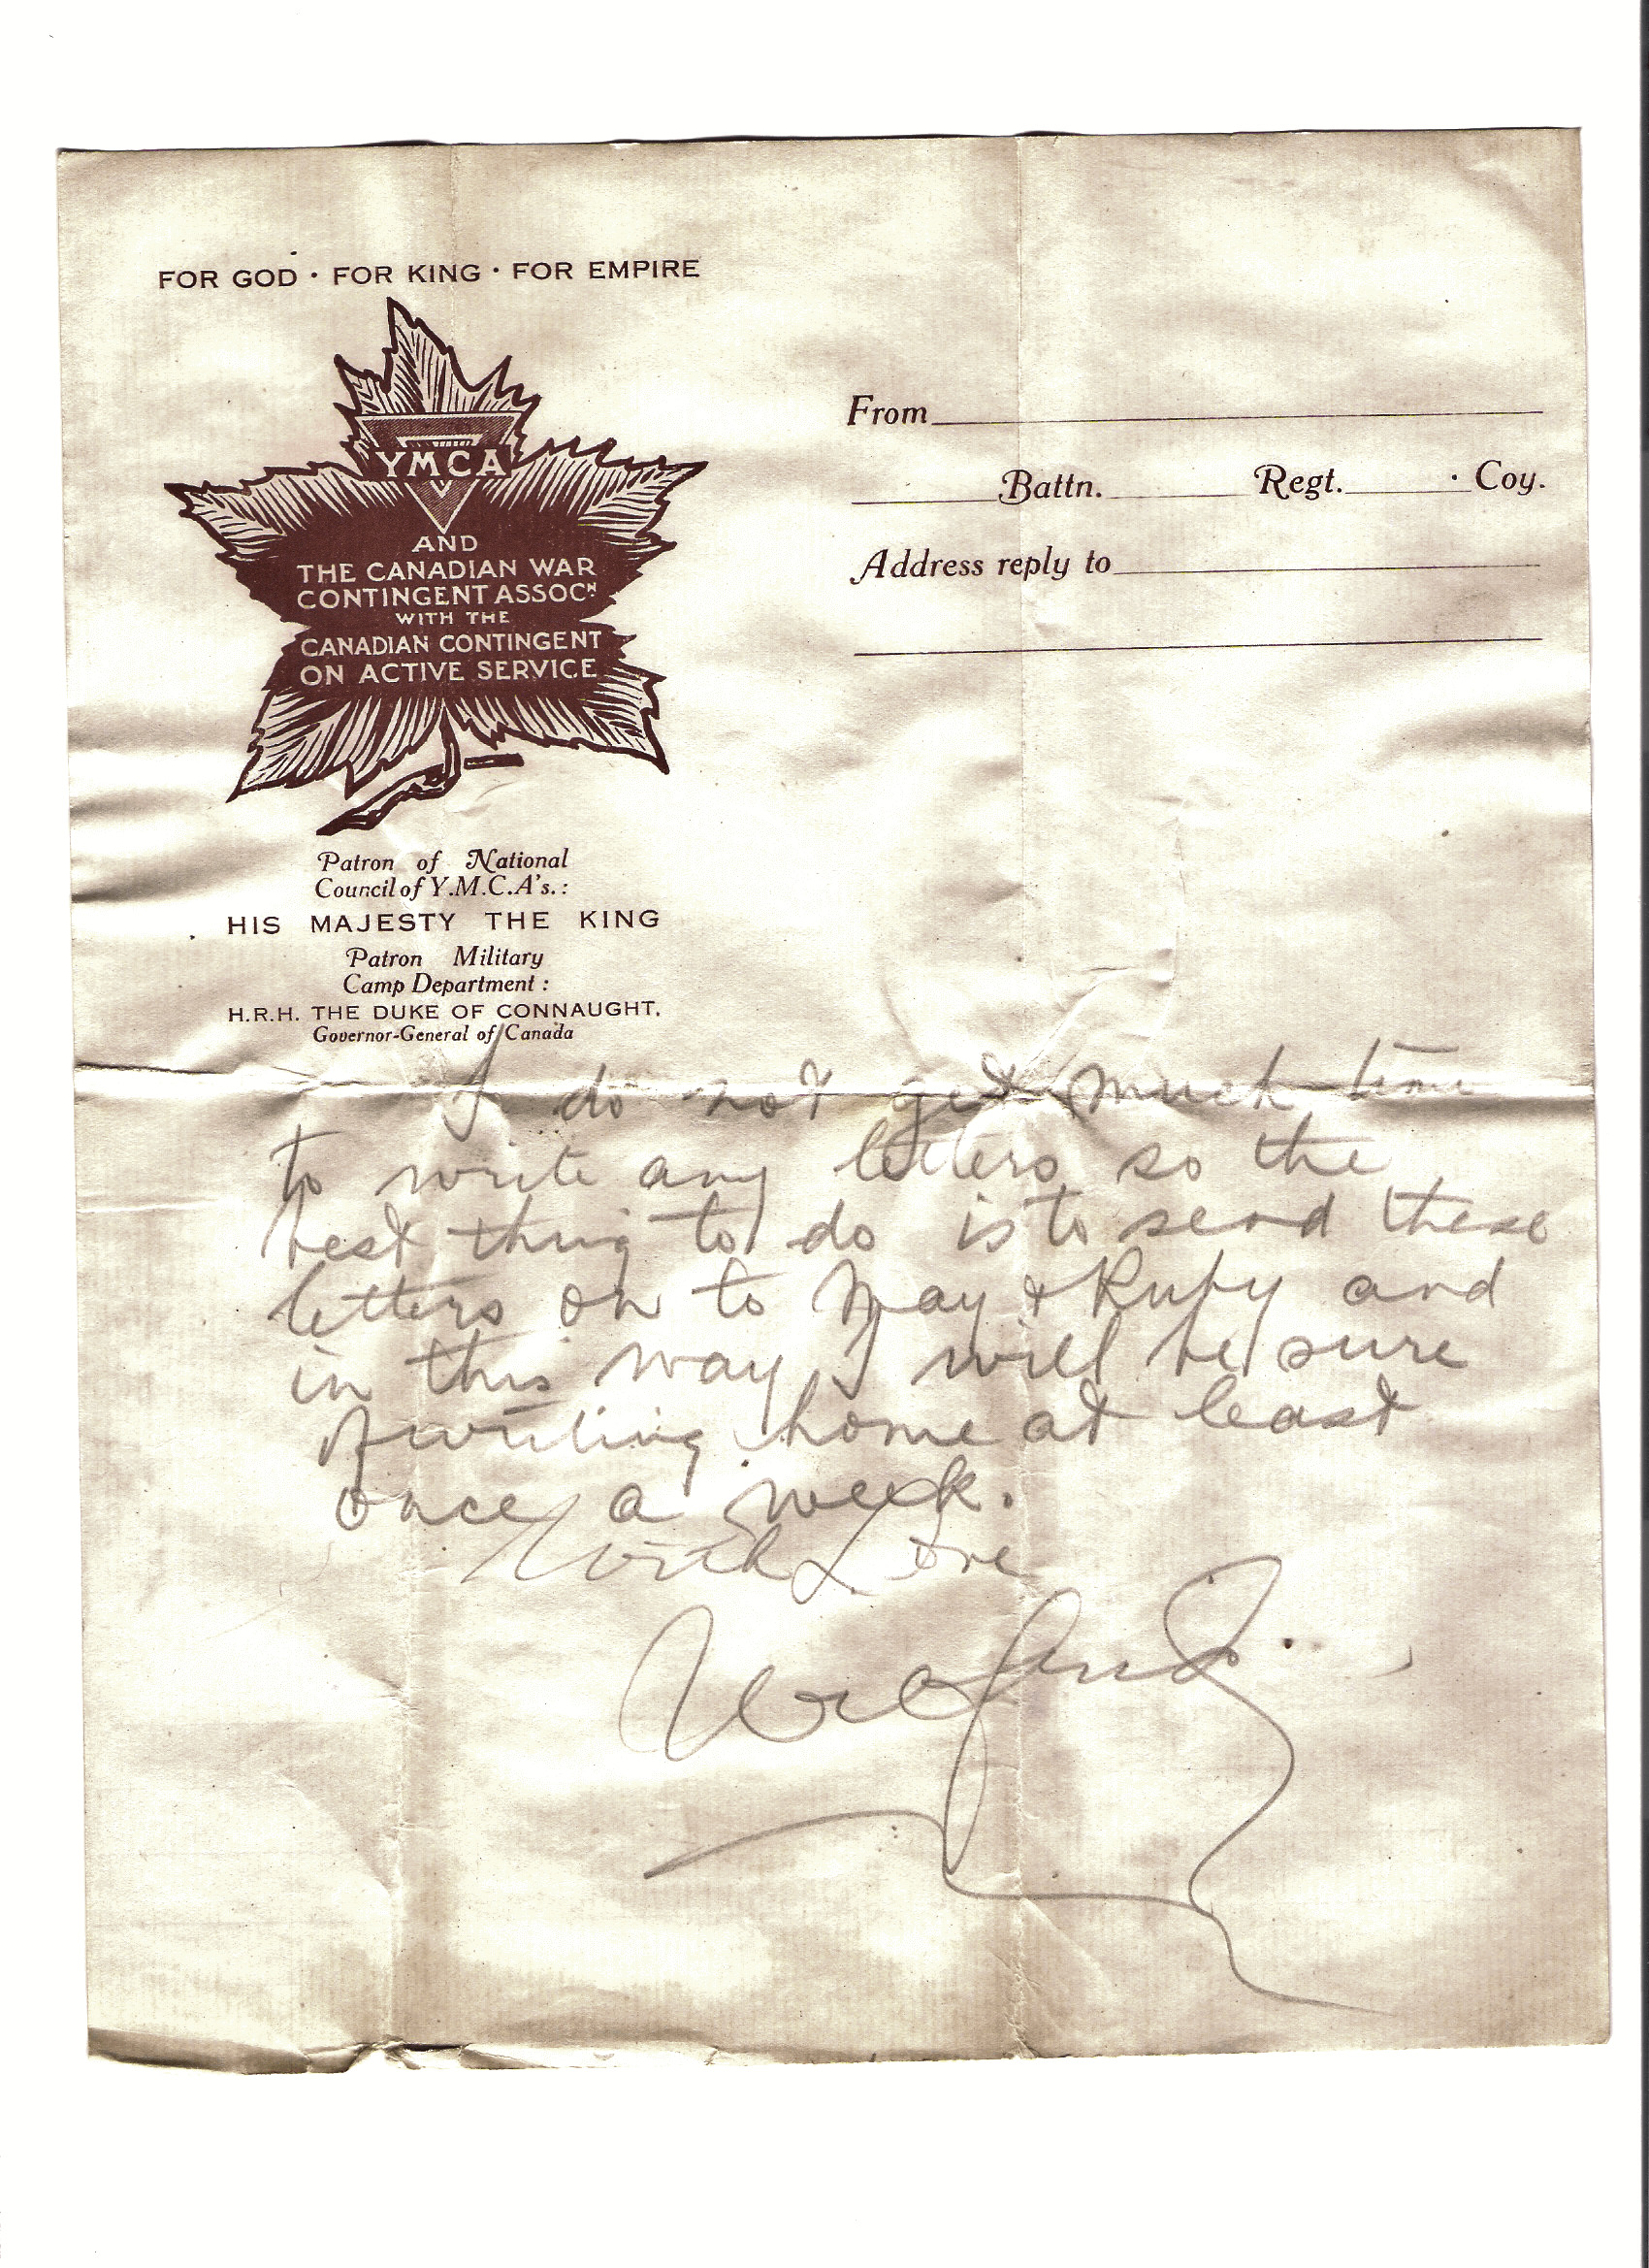 FOR GOD · FOR KING · FOR EMPIRE
YMCA
AND
THE CANADIAN WAR
CONTINGENT ASSOCN
WITH THE
CANADIAN CONTINGENT
ON ACTIVE SERVICE
From
Battn. Regt. Coy.
Address reply to
Patron of National
Council of Y.M.C.A's.:
HIS MAJESTY THE KING
Patron Military
Camp Department:
H.R.H. THE DUKE OF CONNAUGHT,
Governor-General of Canada
I do not get much time
to write any letters so the
best thing to do is to send these
letters on to May & Ruby and
in this way I will be sure
of writing home at least
once a week.
With Love